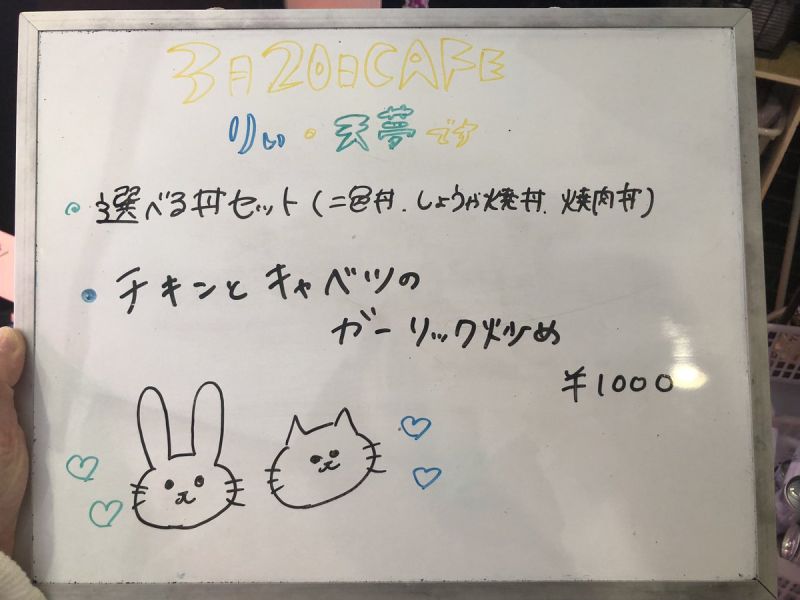 3月20日CAFE
りぃ・天夢です
・選べる丼セット(二色丼.しょうが焼丼.焼肉丼)
・チキンとキャベツの
ガーリック炒め
¥1000